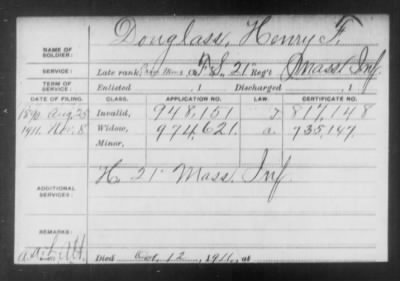 Douglass, Henry F.
NAME OF SOLDIER:
SERVICE: Late rank, F. S., 21" Reg't Mass. Inf.
TERM OF SERVICE: Enlisted , 1 Discharged , 1
DATE OF FILING. CLASS. APPLICATION NO. LAW. CERTIFICATE NO.
1890 Aug. 25 Invalid, 948,151 817,148
1911 Nov. 8. Widow, 974,621. a. 735,147.
Minor,
ADDITIONAL SERVICES: H. 21" Mass. Inf.
REMARKS:
Died Oct. 12, 1911, at